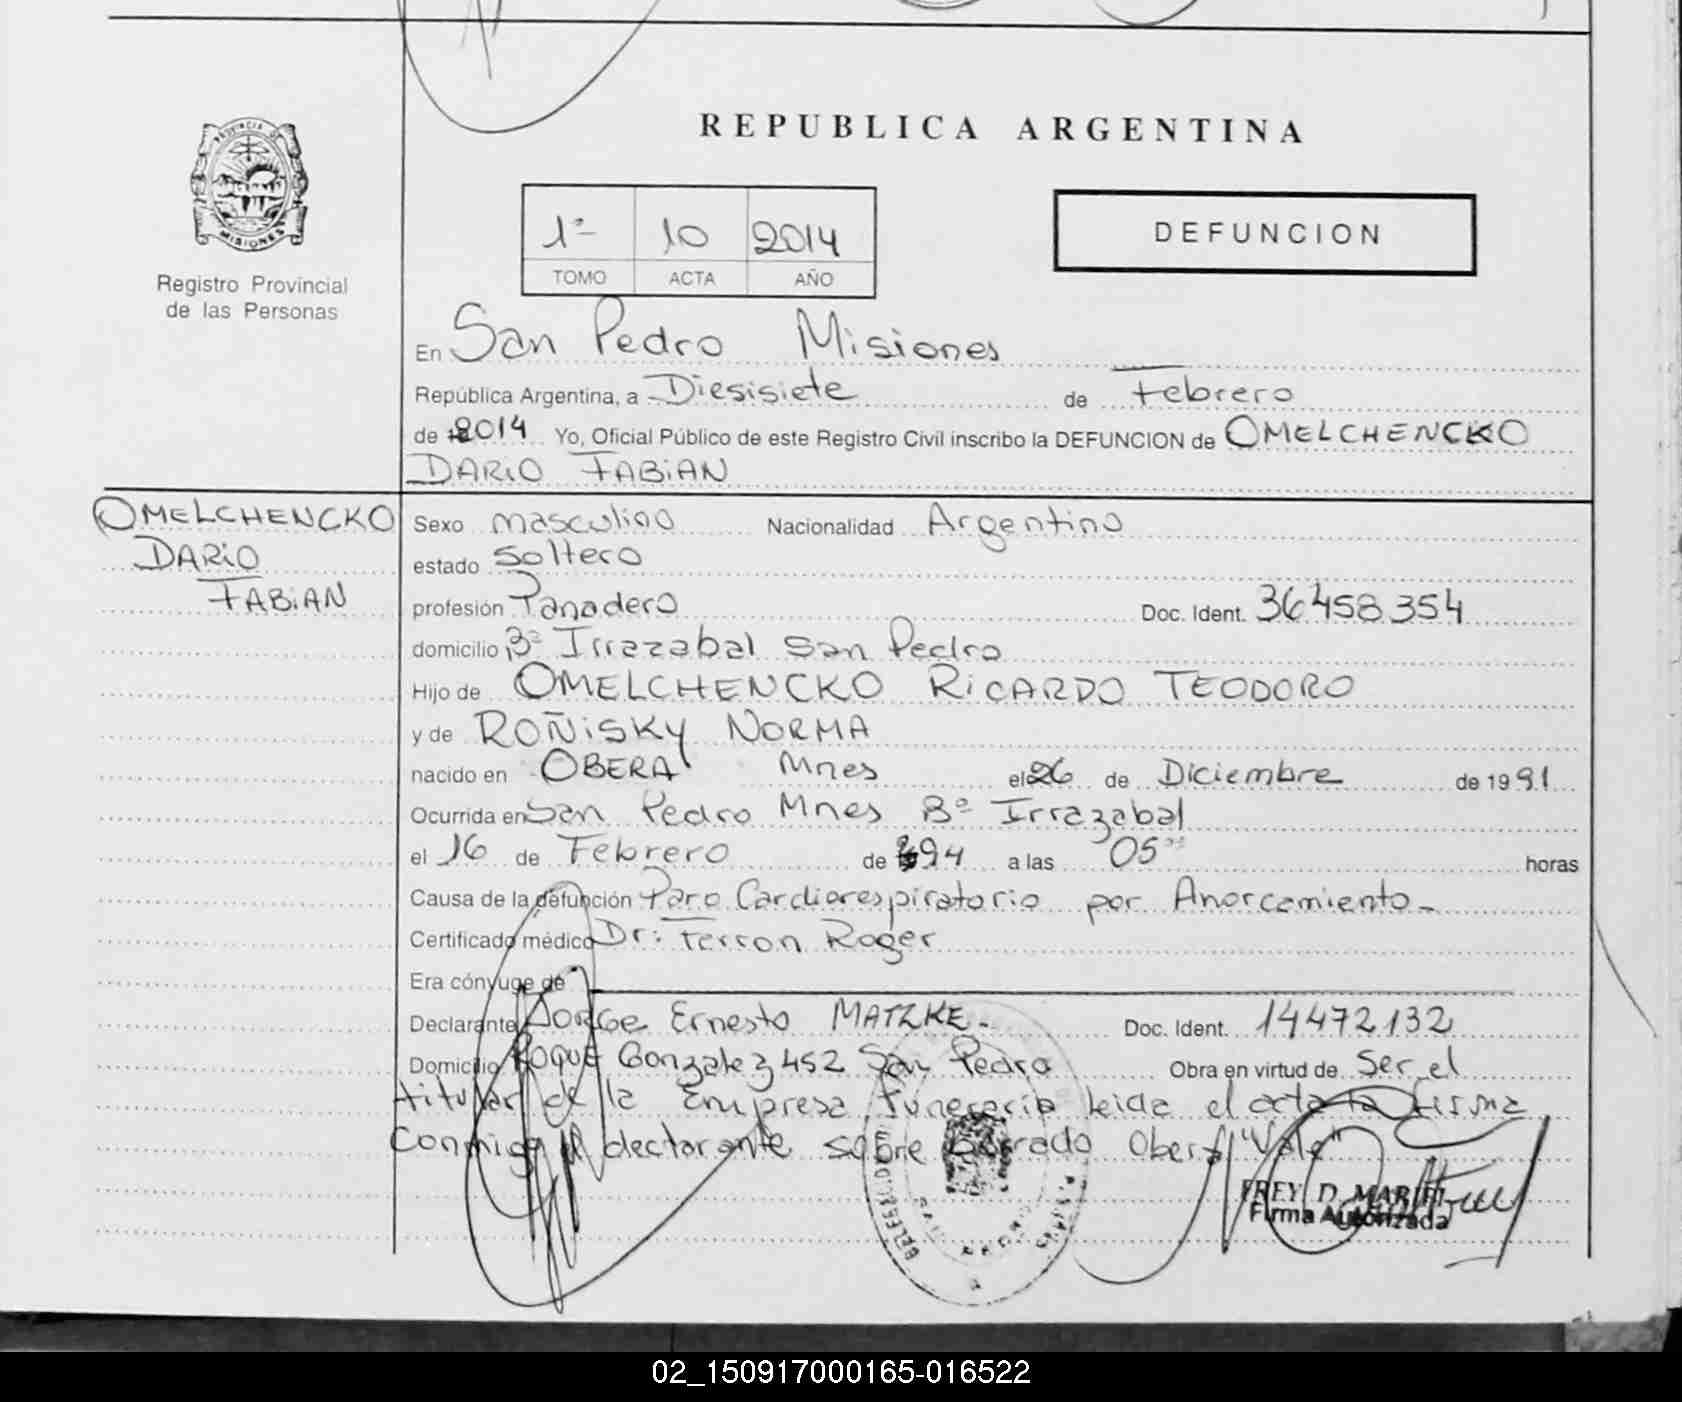 REPUBLICA ARGENTINA
PROVINCIA DE
MISIONES
Registro Provincial
de las Personas
1º 10 2014
TOMO ACTA AÑO
DEFUNCION
En San Pedro Misiones
República Argentina, a Diesisiete de Febrero
de 2014 Yo, Oficial Público de este Registro Civil inscribo la DEFUNCION de OMELCHENCKO
DARIO FABIAN
OMELCHENCKO
DARIO
FABIAN
Sexo masculino Nacionalidad Argentino
estado Soltero
profesión Panadero Doc. Ident. 36458354
domicilio Bº Irrazabal San Pedro
Hijo de OMELCHENCKO RICARDO TEODORO
y de ROÑISKY NORMA
nacido en OBERA Mnes el 26 de Diciembre de 1991
Ocurrida en San Pedro Mnes Bº Irrazabal
el 16 de Febrero de a las 05 horas
Causa de la defunción Paro Cardiorespiratorio por Ahorcamiento-
Certificado médico Dr: Ferron Roger
Era cónyuge de
Declarante JORGE Ernesto MATZKE- Doc. Ident. 14472132
Domicilio ROQUE Gonzalez 452 San Pedro Obra en virtud de Ser el
titular de la Empresa Funeraria leida el acta la firma
conmigo el declarante sobre borrado Obera "Vale"
FREY D. MARIEL
Firma Autorizada
SAN PEDRO
02_150917000165-016522